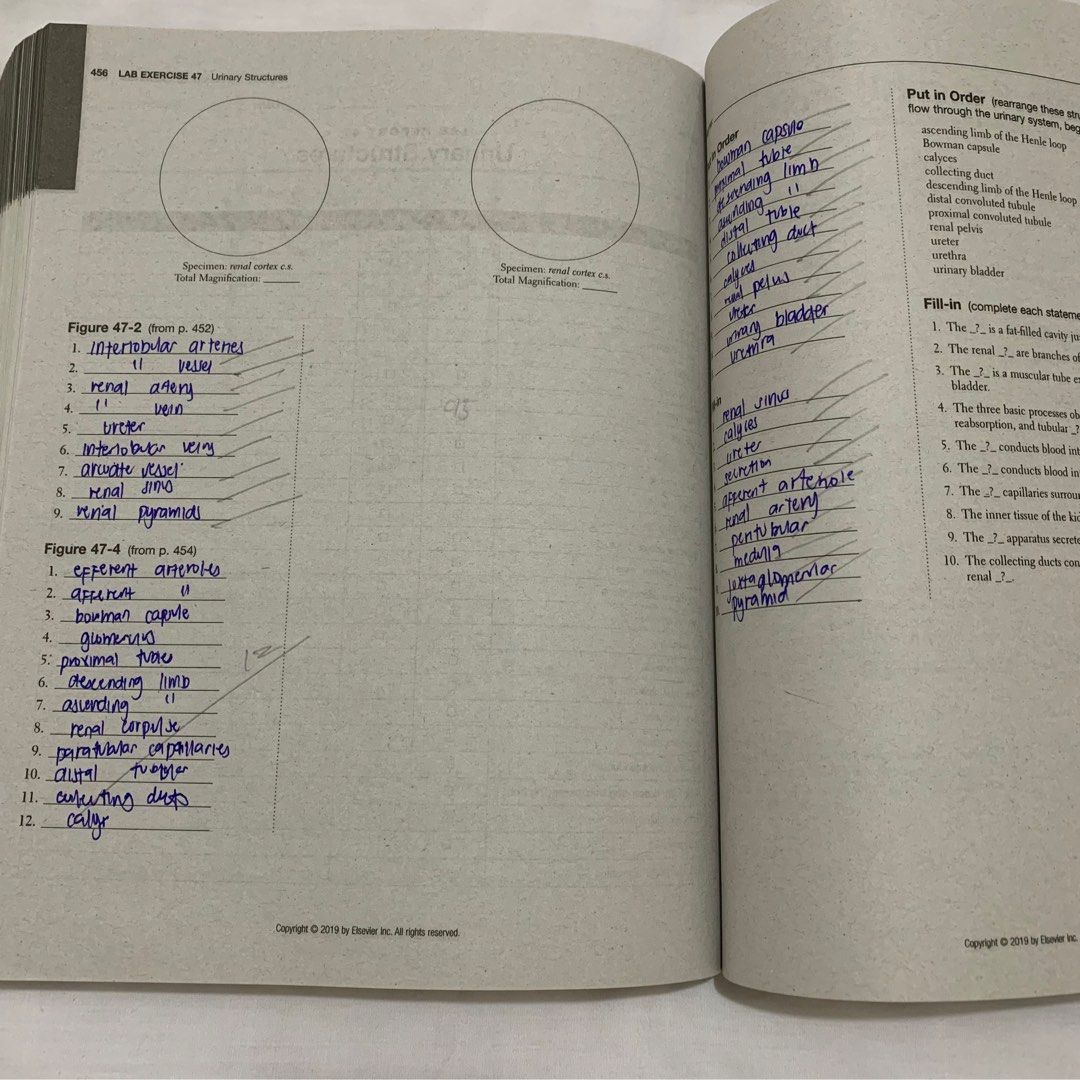 456 LAB EXERCISE 47 Urinary Structures
Specimen: renal cortex c.s.
Total Magnification: ______
Specimen: renal cortex c.s.
Total Magnification: ______
Figure 47-2 (from p. 452)
1. interlobular arteries
2. " vessel
3. renal artery
4. " vein
5. ureter
6. interlobular veins
7. arcuate vessel
8. renal sinus
9. renal pyramids
Figure 47-4 (from p. 454)
1. efferent arterioles
2. afferent "
3. bowman capsule
4. glomerulus
5. proximal
6. descending limb
7. ascending "
8. renal corpulse
9. paratubular capillaries
10. distal
11. collecting ducts
12. calyx
12
93
Copyright © 2019 by Elsevier Inc. All rights reserved.
in Order
bowman capsule
proximal tuble
descending limb
ascending "
distal tuble
collecting duct
calyces
renal pelvis
ureter
urinary bladder
urethra
renal sinus
calyces
ureter
secretion
afferent arteriole
renal artery
peritubular
medulla
juxtaglomerular
pyramid
Put in Order (rearrange these stru
flow through the urinary system, beg
ascending limb of the Henle loop
Bowman capsule
calyces
collecting duct
descending limb of the Henle loop
distal convoluted tubule
proximal convoluted tubule
renal pelvis
ureter
urethra
urinary bladder
Fill-in (complete each stateme
1. The _?_ is a fat-filled cavity ju
2. The renal _?_ are branches of
3. The _?_ is a muscular tube e
bladder.
4. The three basic processes ob
reabsorption, and tubular _?
5. The _?_ conducts blood int
6. The _?_ conducts blood in
7. The _?_ capillaries surrou
8. The inner tissue of the kid
9. The _?_ apparatus secrete
10. The collecting ducts con
renal _?_.
Copyright © 2019 by Elsevier Inc.